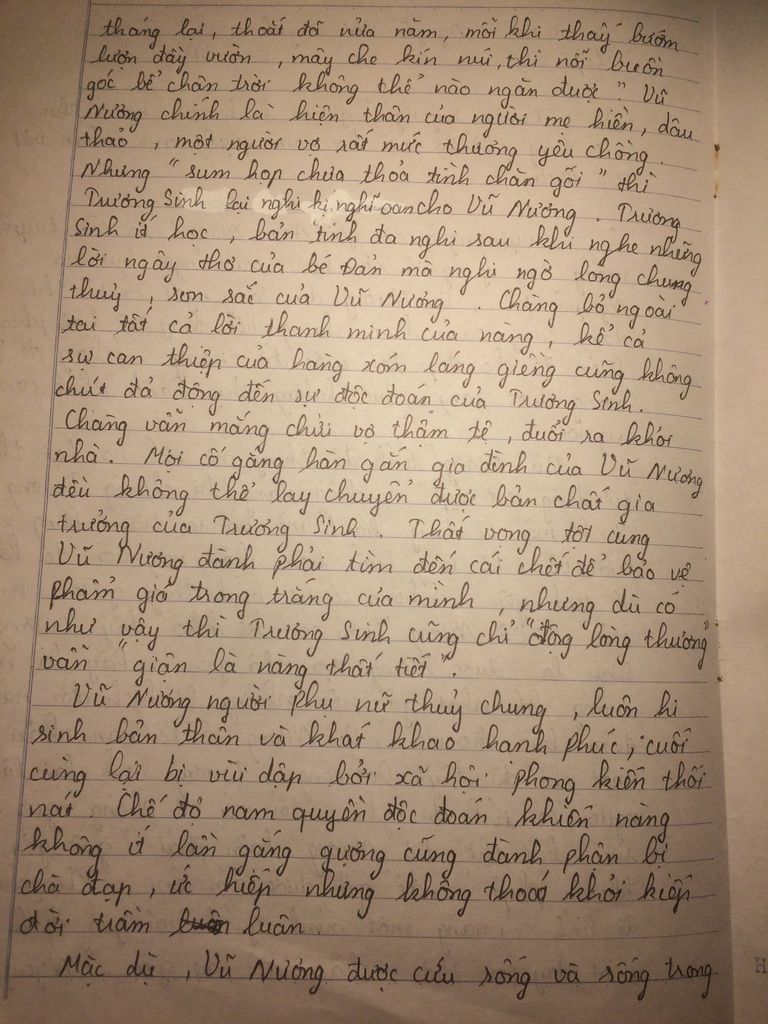 tháng lại, thoắt đã nửa năm, mỗi khi thấy bướm
lượn đầy vườn, mây che kín núi, thì nỗi buồn
góc bể chân trời không thể nào ngăn được". Vũ
Nương chính là hiện thân của người mẹ hiền, dâu
thảo, một người vợ rất mực thương yêu chồng.
Nhưng "sum họp chưa thỏa tình chăn gối" thì
Trương Sinh lại nghi kị nghĩ oan cho Vũ Nương. Trương
Sinh ít học, bản tính đa nghi sau khi nghe những
lời ngây thơ của bé Đản mà nghi ngờ lòng chung
thuỷ, son sắc của Vũ Nương. Chàng bỏ ngoài
tai tất cả lời thanh minh của nàng, kể cả
sự can thiệp của hàng xóm láng giềng cũng không
chút đả động đến sự độc đoán của Trương Sinh.
Chàng vẫn mắng chửi vợ thậm tệ, đuổi ra khỏi
nhà. Mọi cố gắng hàn gắn gia đình của Vũ Nương
đều không thể lay chuyển được bản chất gia
trưởng của Trương Sinh. Thất vọng tột cùng
Vũ Nương đành phải tìm đến cái chết để bảo vệ
phẩm giá trong trắng của mình, nhưng dù có
như vậy thì Trương Sinh cũng chỉ "động lòng thương"
vẫn "giận là nàng thất tiết".
Vũ Nương người phụ nữ thuỷ chung, luôn hi
sinh bản thân và khát khao hạnh phúc, cuối
cùng lại bị vùi dập bởi xã hội phong kiến thối
nát. Chế độ nam quyền độc đoán khiến nàng
không ít lần gắng gượng cũng đành phận bị
chà đạp, ức hiếp nhưng không thoát khỏi kiếp
đời trầm luân.
Mặc dù, Vũ Nương được cứu sống và sống trong
H